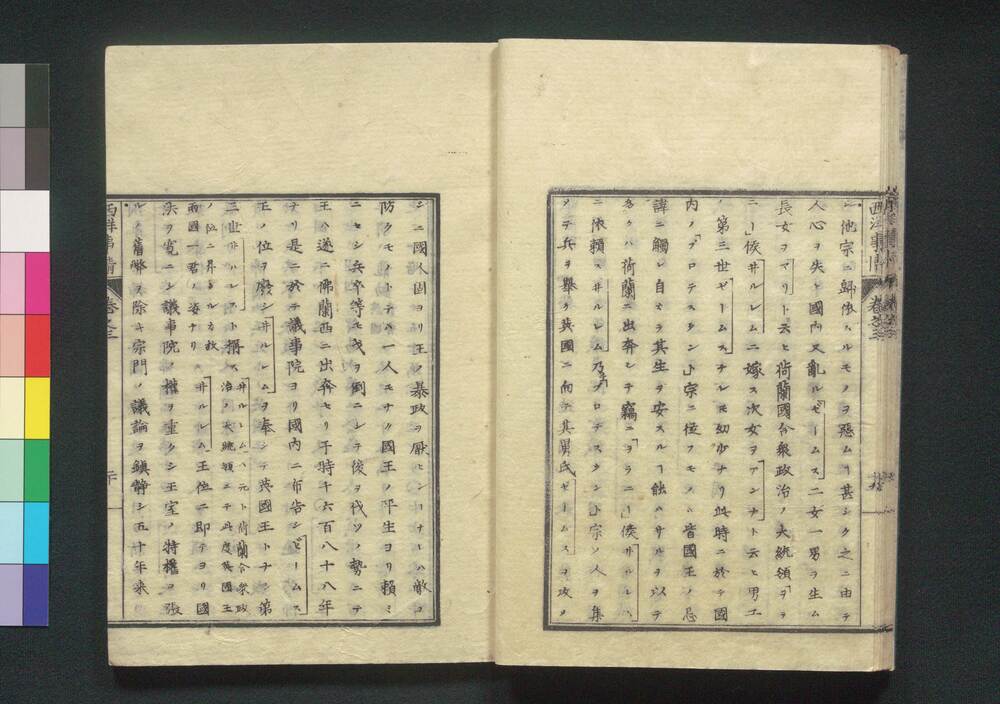 シ他宗ニ歸依スルモノヲ惡ムヿ甚シク之ニ由テ
人心ヲ失ヒ國內又亂ルゼームス二女一男ヲ生ム
長女ヲマリート云ヒ荷蘭國合衆政治ノ大統領ヲヲ
ニヿ侯井ルレムニ嫁ス次女ヲアンナト云ヒ男工
ノ第三世ゼームスナルモ幼少ナリ此時ニ於テ國
內ノプロテスタントト宗ニ從フモノハ皆國王ノ忌
諱ニ觸レ自カラ其生ヲ安スルヿ能ハサルヲ以テ
多クハ荷蘭ニ出奔シテ竊ニヲラニヿ侯井ルレム
ニ依賴ス井ルレム乃チプロテスタント宗ノ人ヲ集
メテ兵ヲ舉ケ英國ニ向テ其男氏ゼームスヲ攻ム
西洋事情 卷之三
シニ國人固ヨリ王ノ暴政ヲ厭ヒシヿナレハ敵ヲ
防クモノトテハ一人モナク國王ノ平生ヨリ賴ミ
ニセシ兵卒等モ戈ヲ倒ニシテ後ヲ伐ツノ勢ニテ
王ハ遂ニ佛蘭西ニ出奔セリ于時千六百八十八年
ナリ是ニ於テ議事院ヨリ國內ニ布告シゼームス
王ノ位ヲ廢シ井ルレムヲ奉シテ英國王トナシ第
三世井ルレムト稱ス
井ルレムハ元ト荷蘭合衆政
治ノ大統領ニテ此度英國王
ノ位ニ昇リタルカ故
兩國一君ノ姿ナリ
井ルレム王位ニ即テヨリ國
法ヲ寬ニシ議事院ノ權ヲ重クシ王室ノ特權ヲ張
ルノ舊弊ヲ除キ宗門ノ議論ヲ鎮靜シ五十年來
西洋事情 卷之三